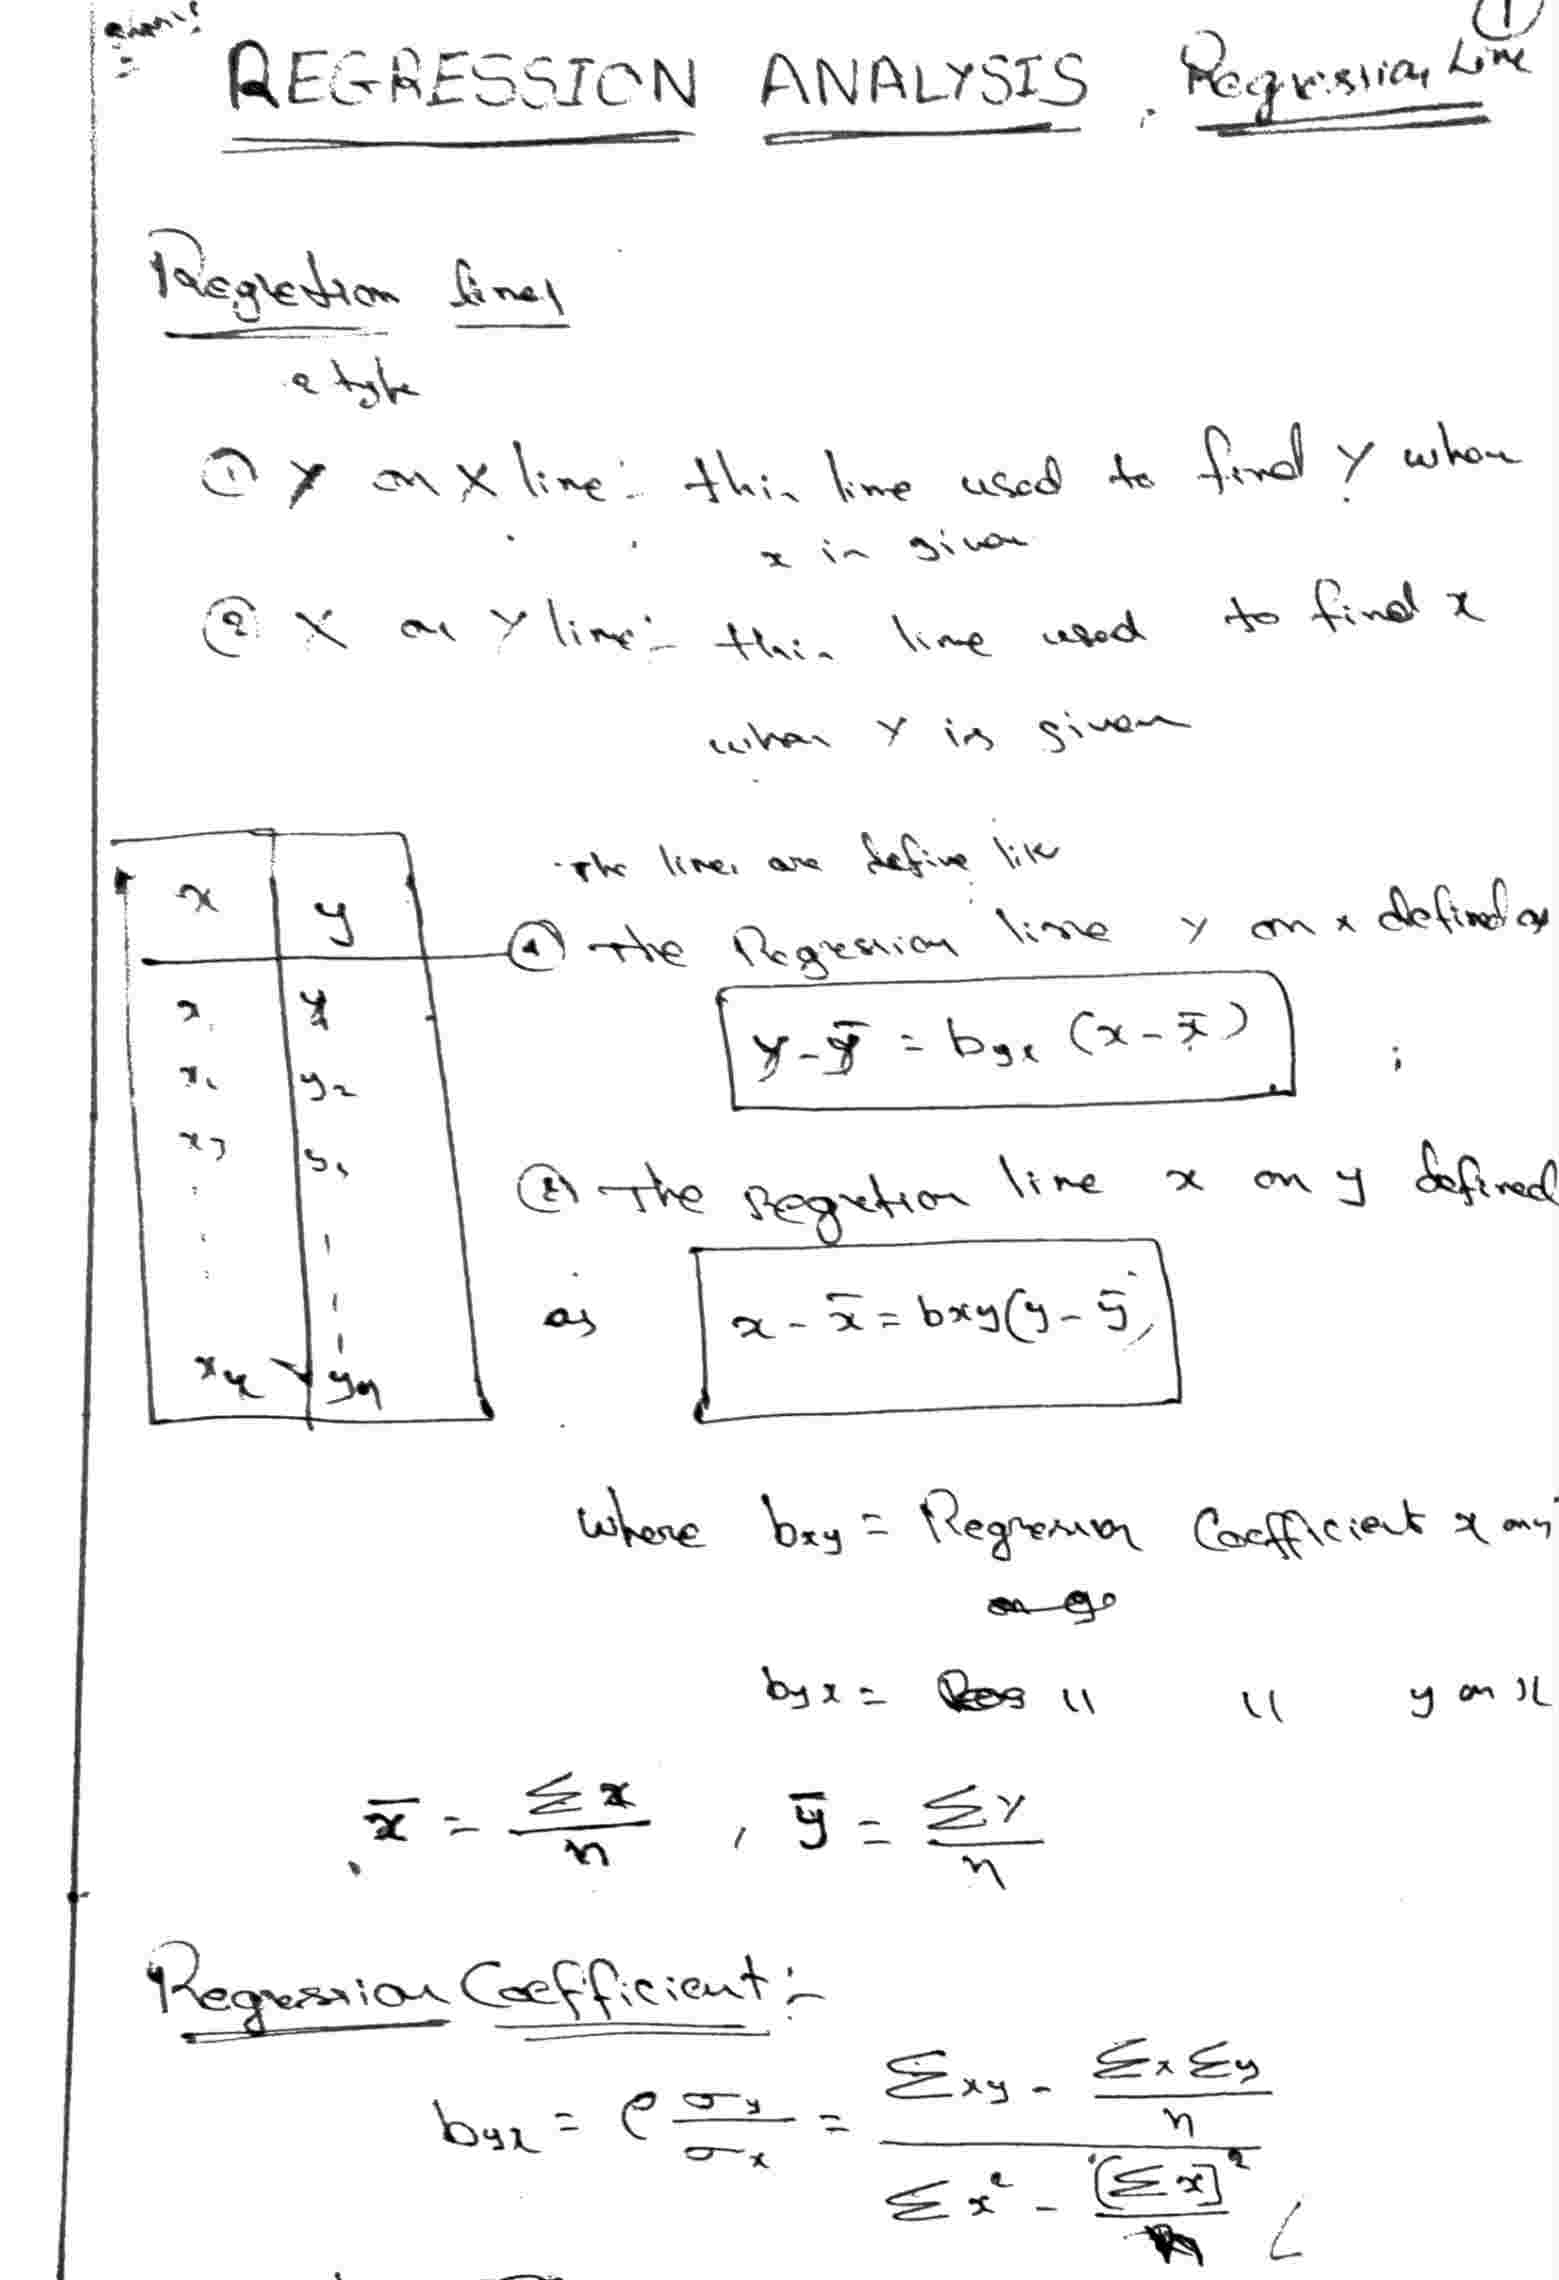 ①
REGRESSION ANALYSIS, Regression Line
Regretion lines
2 type
① Y on X line:- this line used to find Y when
x is given
② X on Y line:- this line used to find x
when Y is given
The lines are define like
x | y
① The Regression line y on x defined as
x₁ | y₁
y - ȳ = byx (x - x̄)
x₂ | y₂
x₃ | y₃
② The Regretion line x on y defined
as x - x̄ = bxy(y - ȳ)
xn | yn
where bxy = Regression Coefficient x on y
byx = " " y on x
x̄ = Σx/n , ȳ = Σy/n
Regression Coefficient:-
byx = ρ σy/σx = (Σxy - ΣxΣy/n) / (Σx² - [Σx]²/n)